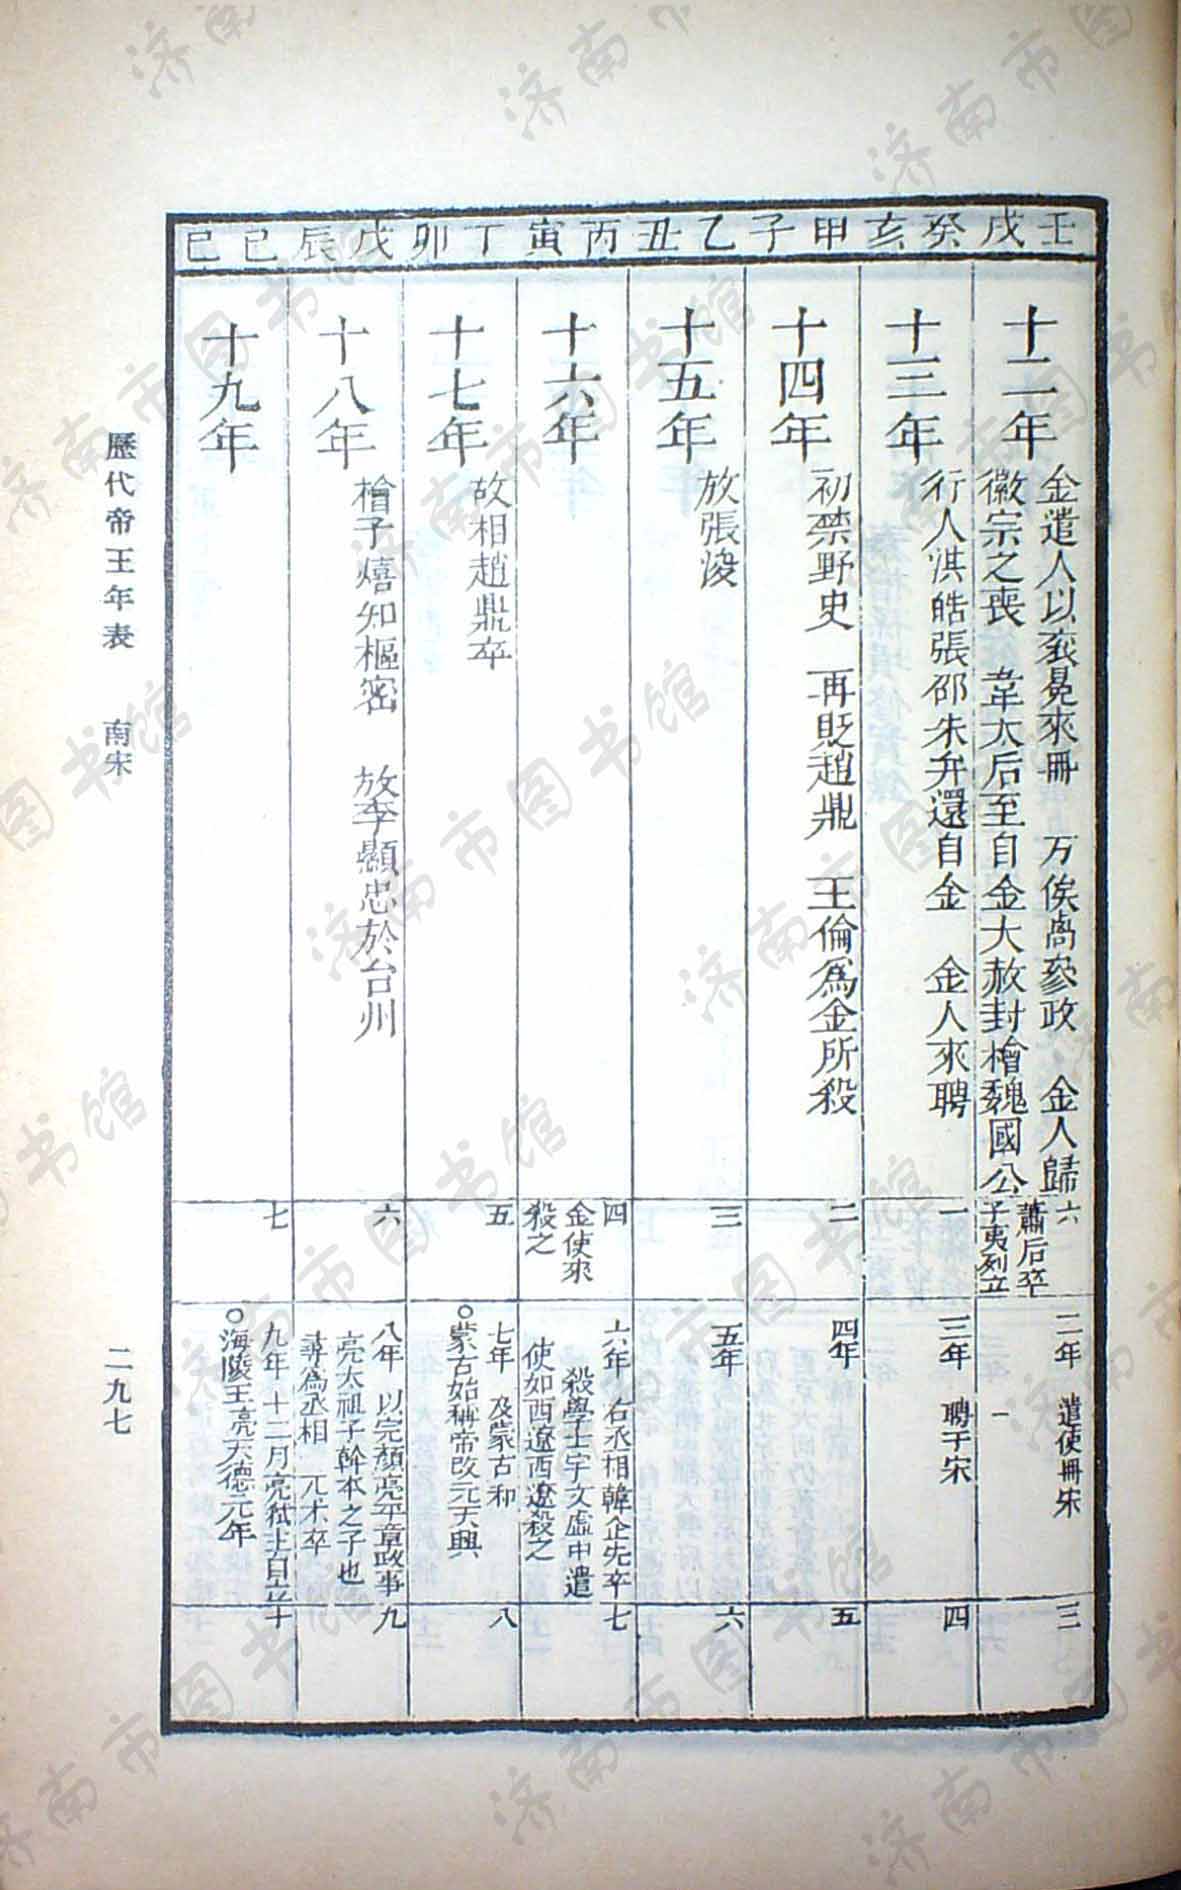 壬戌
十二年
金遣人以衮冕來冊　万俟卨參政　金人歸
徽宗之喪　韋太后至自金大赦封檜魏國公
六
蕭后卒
子夷列立
二年　遣使冊宋
三
癸亥
十三年
行人洪皓張邵朱弁還自金　金人來聘
一
三年　聘于宋
四
甲子
十四年
初禁野史　再貶趙鼎　王倫爲金所殺
二
四年
五
乙丑
十五年
放張浚
三
五年
六
丙寅
十六年
四
金使來
殺之
六年　右丞相韓企先卒
殺學士宇文虛中遣
使如西遼西遼殺之
七
丁卯
十七年
故相趙鼎卒
五
七年　及蒙古和
○蒙古始稱帝改元天興
八
戊辰
十八年
檜子熺知樞密　放李顯忠於台州
六
八年　以完顏亮平章政事
亮太祖子斡本之子也
尋爲丞相　兀朮卒
九
己巳
十九年
七
九年　十二月亮弒主自立
○海陵王亮天德元年
十
歷代帝王年表　南宋
二九七
济南市图书馆